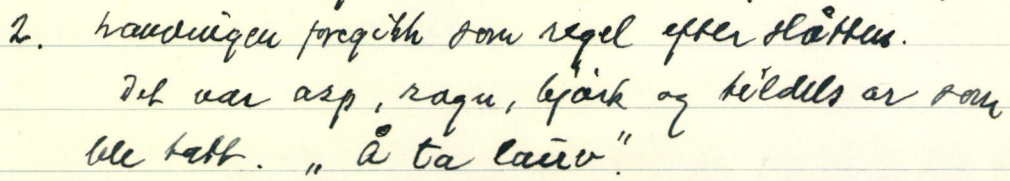 2. Lauvingen foregikk som regel efter slåtten.
Det var asp, rogn, bjørk og tildels or som
ble tatt. „Å ta lauv".